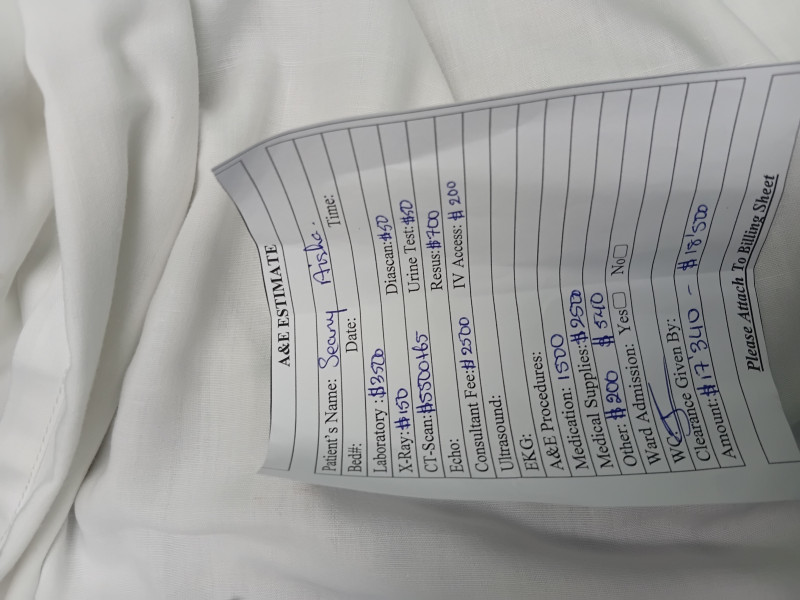 A&E ESTIMATE
Patient's Name: Seany Aisha.
Bed#: Date: Time:
Laboratory: $3500 Diascan: $50
X-Ray: $150 Urine Test: $60
CT-Scan: $5500+65 Resus: $700
Echo: IV Access: $200
Consultant Fee: $2500
Ultrasound:
EKG:
A&E Procedures:
Medication: 1500
Medical Supplies: $2500
Other: $200 $540
Ward Admission: Yes☐ No☐
WC
Clearance Given By:
Amount: $17 340 - $18'500
Please Attach To Billing Sheet